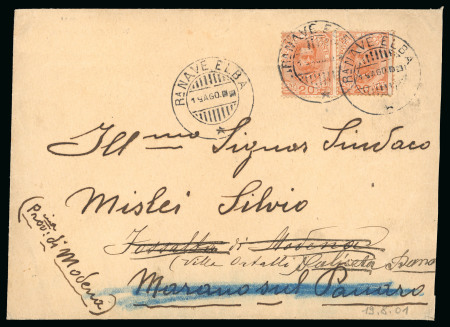 Rª NAVE ELBA
19 AGO.
Rª NAVE ELBA
Rª NAVE ELBA
19 AGO.
20
20
Ill.mo Signor Sindaco
Mislei Silvio
Fossalta di Modena
(Villa
Marano sul Panaro
(Prov.ia di Modena)
19.8.01